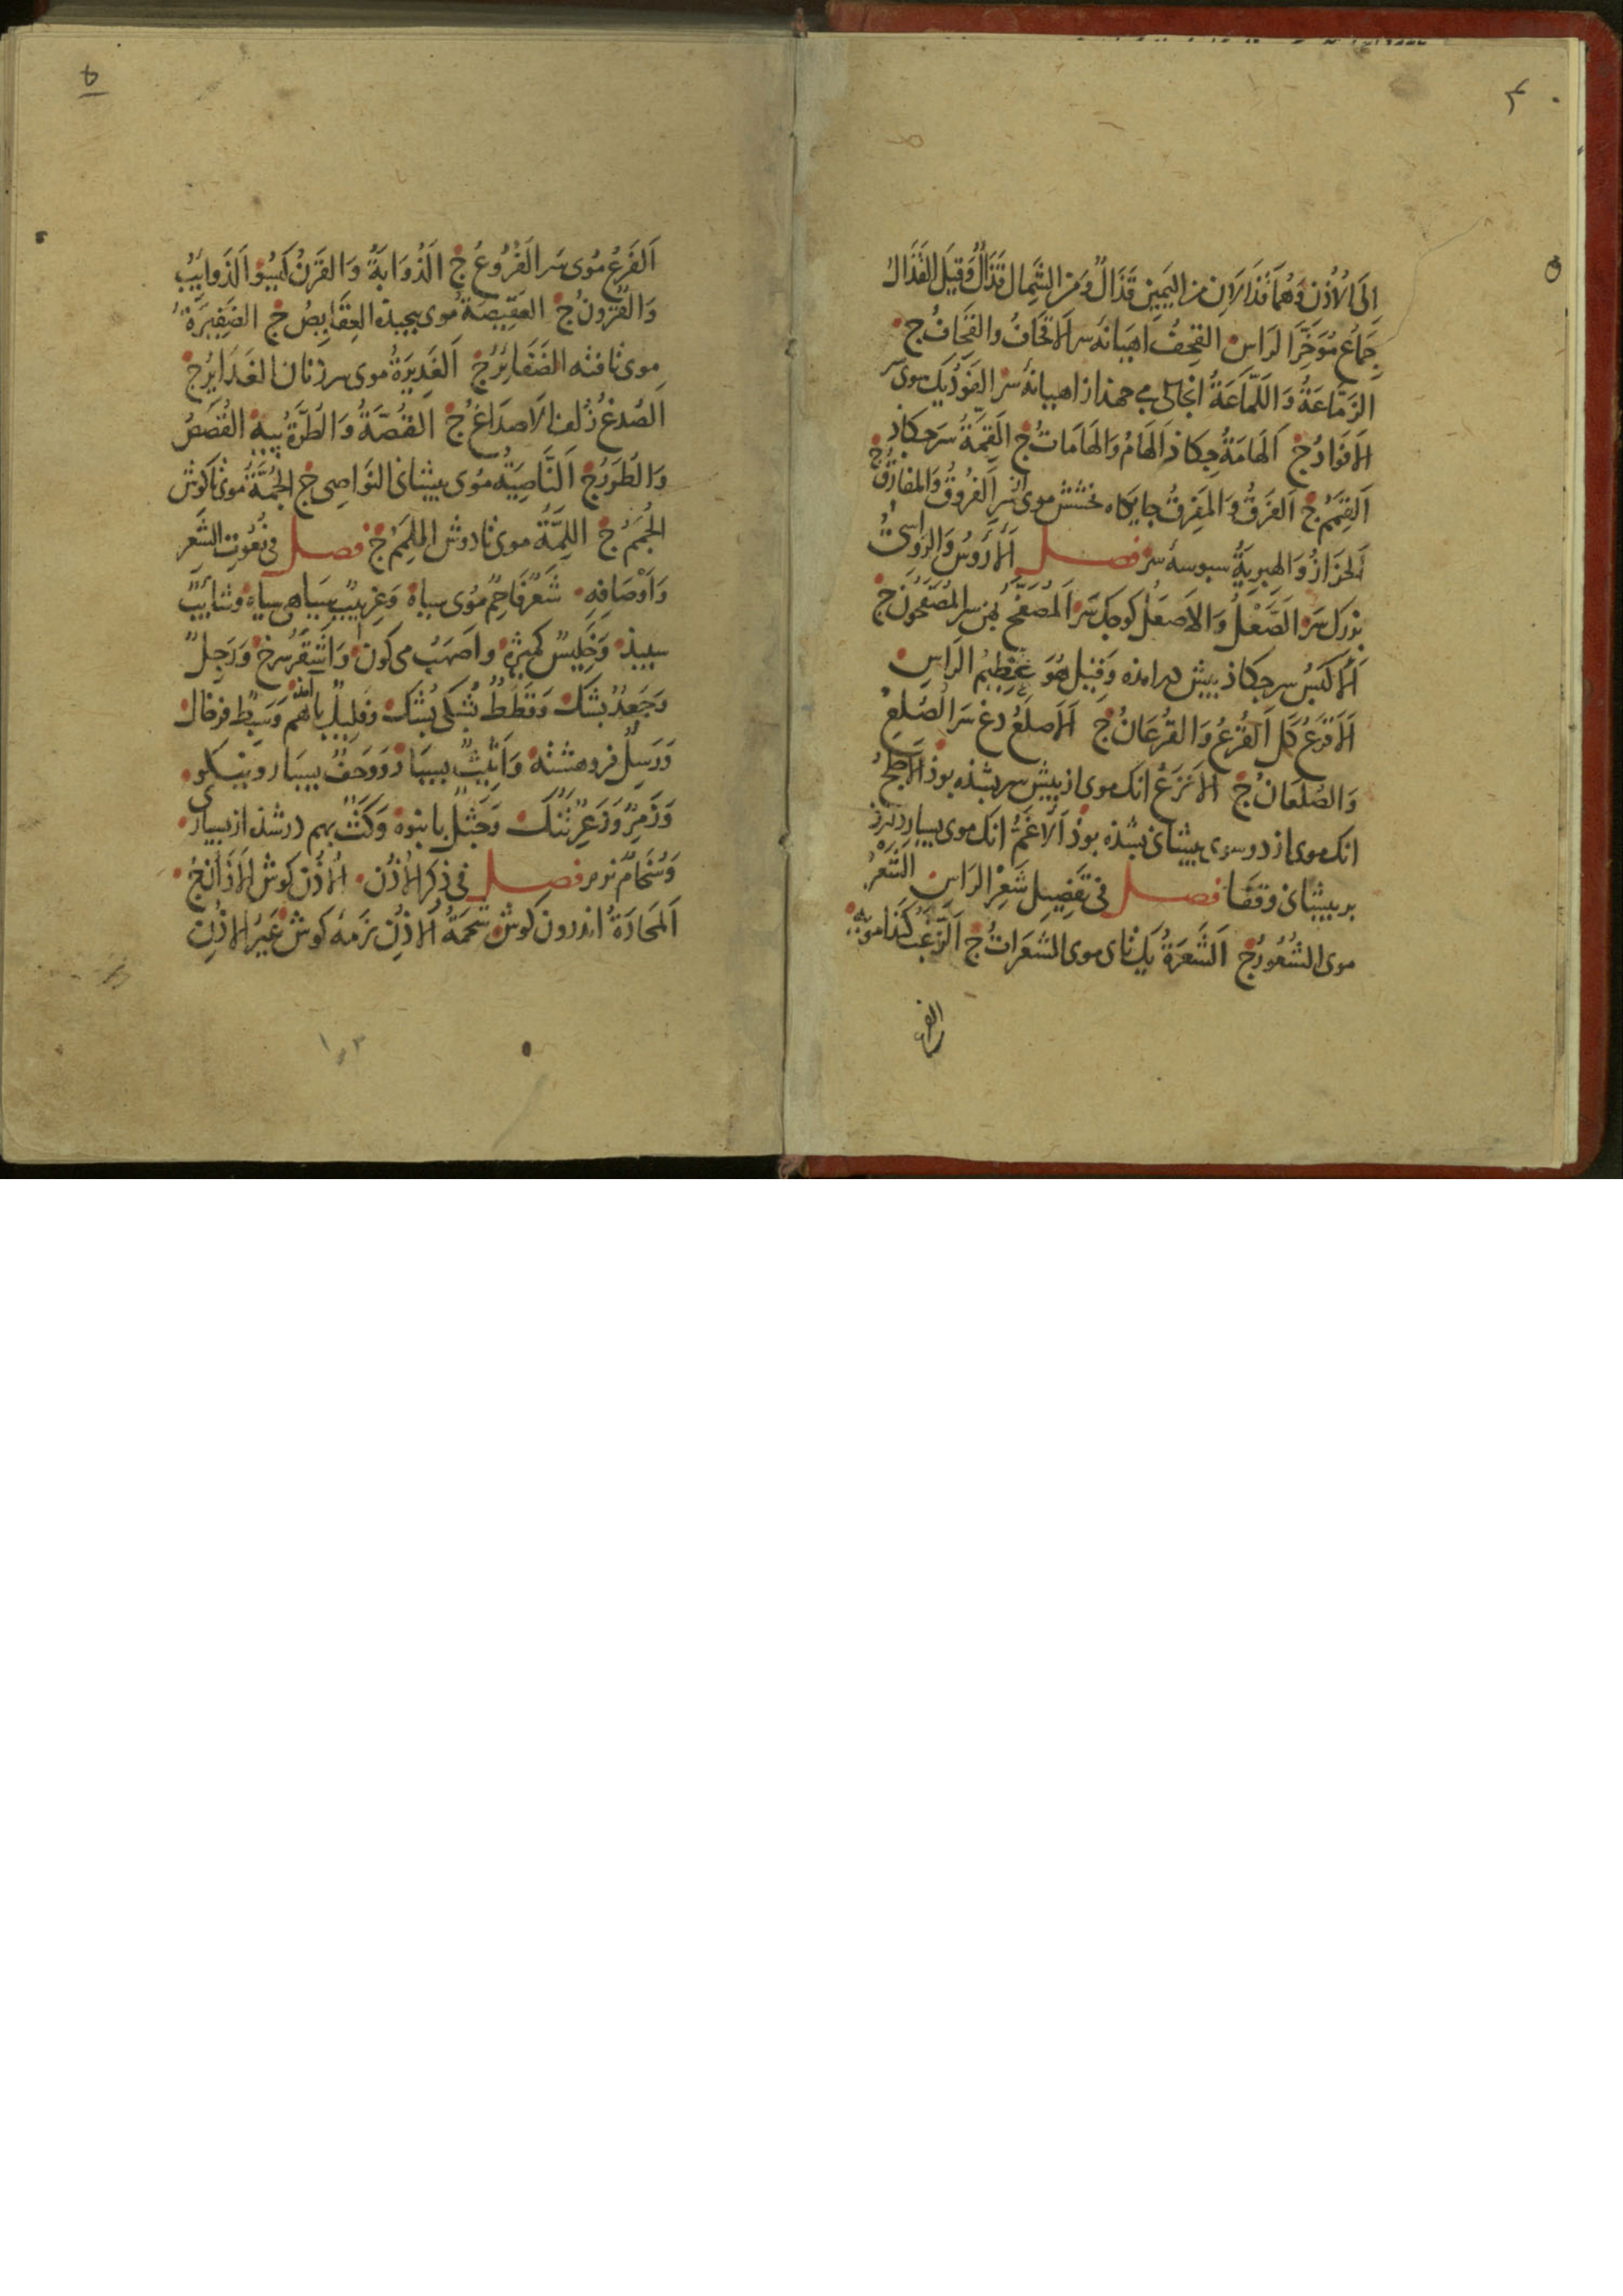 ۴
الَى الْاُذُن وَهُمَا قَذَالَانِ مِنَ الْيَمِينِ قَذَالٌ وَمِنَ الشِّمَالِ قَذَالٌ وَقِيلَ القَذَالُ
جِمَاعُ مُؤَخَّرِ الرَاسِ القِحْفُ اهيانهٔ سر الاَقْحَافُ والقِحَافُ ج
الرَمَّاعَةُ وَاللَّمَّاعَةُ انجاى مى جهذ از اهيانهٔ سر الفَوْدُ يك سوى سر
الاَفْوَادُ ج اَلهَامَةُ جكاذ اَلهَامُ وَالهَامَاتُ ج القِمَّةُ سر جكاذ
اَلقِمَمُ ج اَلفَرْقُ وَالمَفْرِقُ جايكاه بخشش موى از سر اَلفُرُوقُ وَالمفَارِقُ ج
اَلحَزَازُ وَالهِبرِيَةُ سبوسهٔ سر فصل اَلْاَرْوَسُ وَالرُوَاسِىُّ
بزرك سر الصَّعْلُ وَالاَصْعَلُ كوجك سر اَلمُصَفَّحُ بهن سر المُصَفَّحُونَ ج
اَلاَكْبَسُ سر جكاذ بيش درامذه وَقِيلَ هُوَ عَظِيمُ الرَاسِ
اَلاَقْرَعُ كَل اَلقُرْعُ وَالقُرْعَانُ ج اَلاَصْلَعُ دغ سر الصُلْعُ
وَالصُلْعَانُ ج اَلاَنْزَعُ انك موى از بيش سر بشذه بوذ اَلاَجْلَحُ
انك موى از دو سوى بيشانى بشذه بوذ اَلاَغَمُّ انك موى بسيار دارذ
بر بيشانى وقفا فصل فى تَفْصِيلِ شَعْرِ الرَاسِ الشَعْرُ
موى الشُعُورُ ج اَلشَعْرَةُ يك تاى موى الشَعَرَاتُ ج اَلزَغَبُ كندا مويه
الفرع
۵
اَلفَرْعُ مُوى سَر الفُرُوعُ ج اَلذُوَابَةُ وَالقَرْنُ كيسو اَلذَوايِبُ
وَالقُرُونُ ج العَقِيصَةُ مُوى بيجيذه العِقَايِصُ ج الضَفِيرَةُ
موى تافته الضَفَايِرُ ج اَلغَدِيرَةُ موى سر زنان الغَدَايِرُ ج
الصُدْغُ زُلف الاَصدَاغُ ج القُصَّةُ وَالطُرَّةُ بيبه القُصَصُ
وَالطُرَرُ ج اَلنَّاصِيَةُ مُوى بيشانى النَوَاصِى ج الجُمَّةُ موى تا كوش
الجُمَمُ ج اللِمَّةُ موى تا دوش اللِمَمُ ج فصل فى نُعُوتِ الشَعْرِ
وَاَوْصَافِهِ شَعْرٌ فَاحِمٌ مُوى سياه وَغِربِيبٌ سياهى سياه وشَائِبٌ
سبيذ وَخَلِيسٌ كميژه واَصهَبُ مى كون وَاَشقَرُ سرخ وَرَجِلٌ
وَجَعْدٌ بشك وَقَطَطٌ بشكى بشك وَفَلِيلٌ باهم امذه وَسَبِطٌ فرخال
وَرَسِلٌ فروهشته وَاَثِيثٌ بسيار وَوَحَفٌ بسيار ونيكو
وَزَمِرٌ وَزَعِرٌ تُنُك وَجَثْلٌ بانبوه وَكَثٌّ بهم در شذه از بسيارى
وَسُخَامٌ نرم فصل فى ذِكرِ الاُذُن اَلاُذُن كوش اَلآذَانُ ج
اَلمَحَارَةُ اندرون كوش شَحمَةُ الاُذُنِ نرمهٔ كوش عَيرُ الاُذُنِ